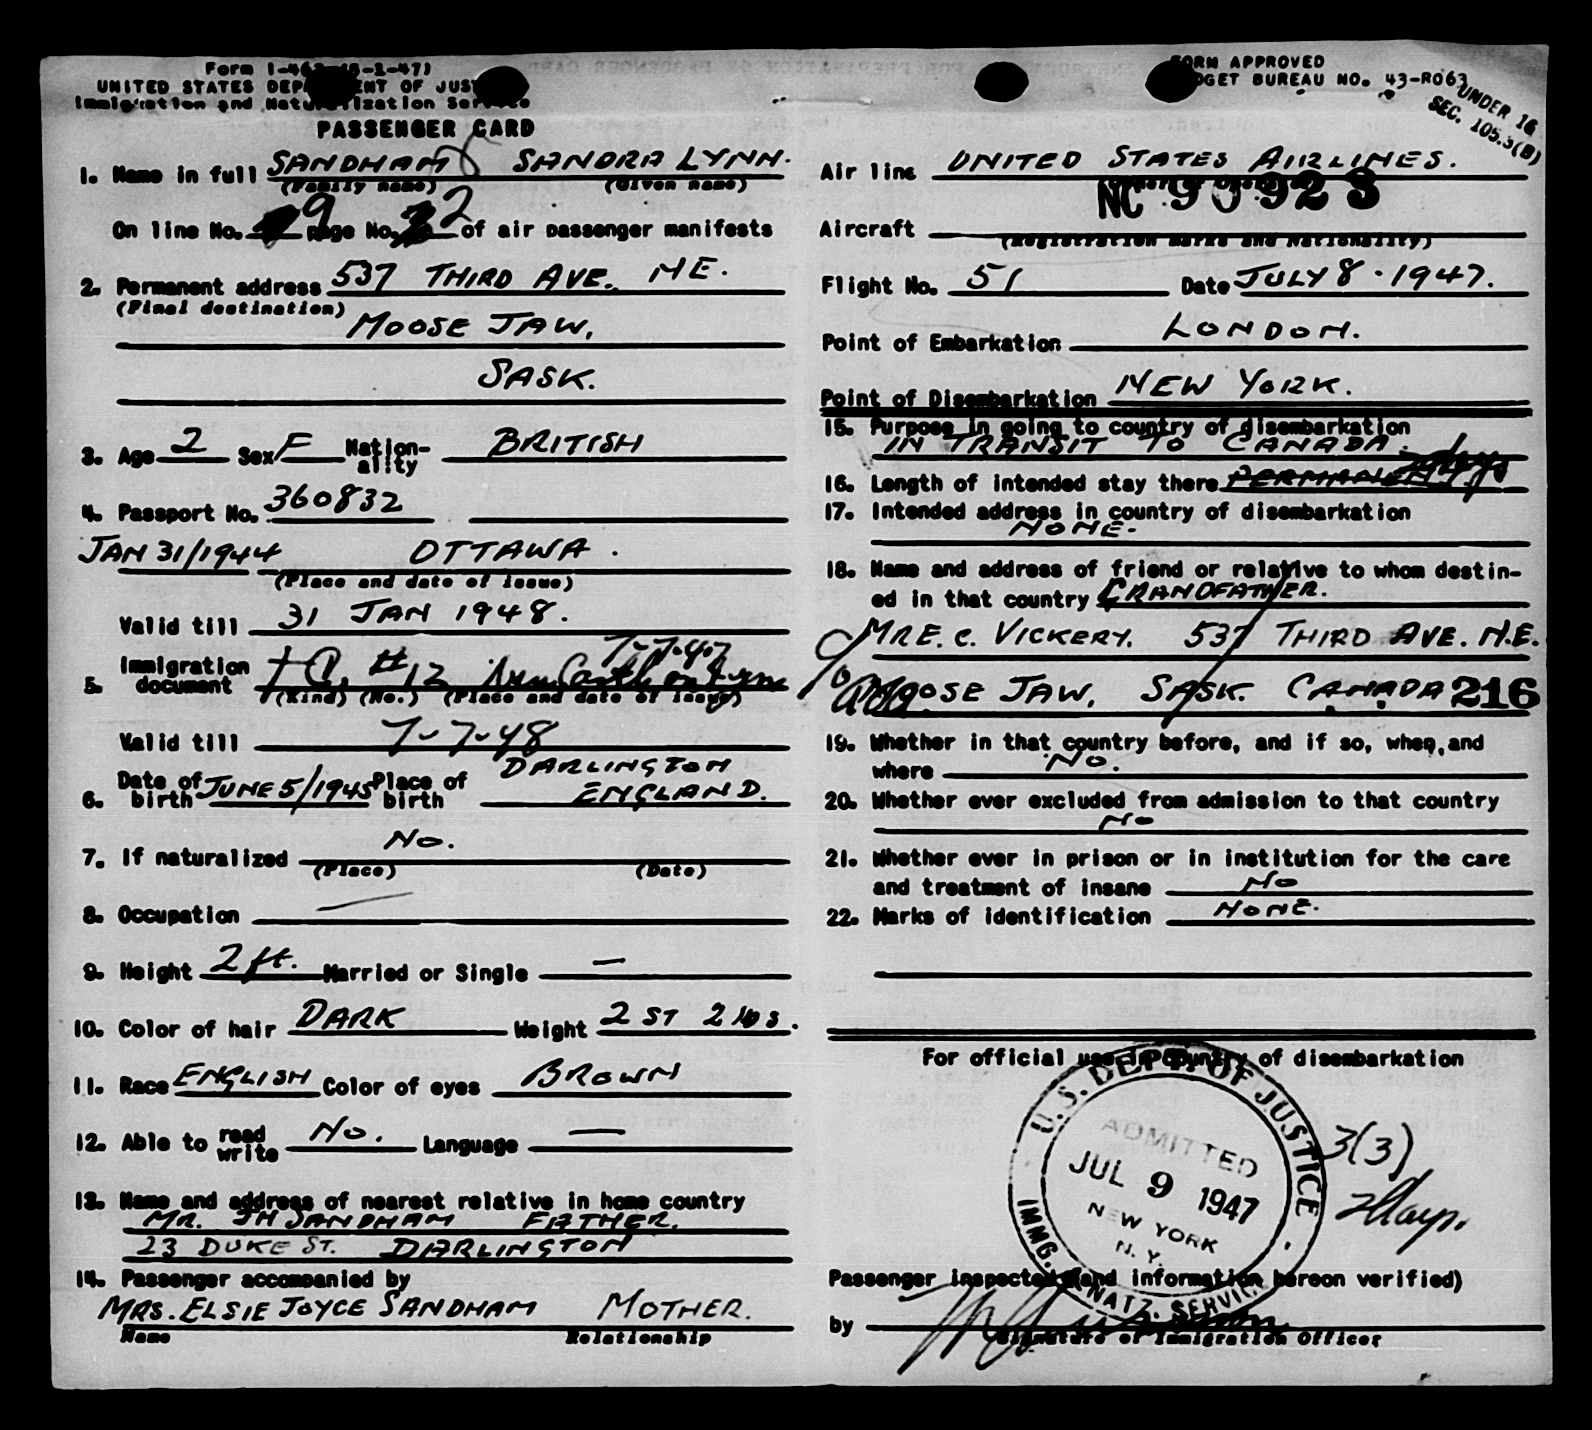 Form I-46
UNITED STATES DEP ENT OF JUS
Immigration and Naturalization Service
PASSENGER CARD
1. Name in full SANDHAM SANDRA LYNN.
(Family name) (Given name)
On line No. 9 page No. 2 of air passenger manifests
2. Permanent address 537 THIRD AVE. NE.
(Final destination)
MOOSE JAW,
SASK.
3. Age 2 Sex F Nation-ality BRITISH
4. Passport No. 360832
JAN 31/1944 OTTAWA.
(Place and date of issue)
Valid till 31 JAN 1948.
7-7-47
5. Immigration document #12
(Kind) (No.) (Place and date of issue)
Valid till 7-7-48
6. Date of birth JUNE 5/1945 Place of birth DARLINGTON ENGLAND.
7. If naturalized NO.
(Place) (Date)
8. Occupation —
9. Height 2 ft. Married or Single —
10. Color of hair DARK Weight 2 ST 2 lbs.
11. Race ENGLISH Color of eyes BROWN
12. Able to read write NO. Language —
13. Name and address of nearest relative in home country
MR. JH SANDHAM FATHER.
23 DUKE ST. DARLINGTON
14. Passenger accompanied by
MRS. ELSIE JOYCE SANDHAM MOTHER.
Name Relationship
FORM APPROVED
DGET BUREAU NO. 43-R063
UNDER 16
SEC. 105.3(B)
Air line UNITED STATES AIRLINES.
NC 90923
Aircraft
(Registration marks and Nationality)
Flight No. 51 Date JULY 8. 1947.
Point of Embarkation LONDON.
Point of Disembarkation NEW YORK.
15. Purpose in going to country of disembarkation
IN TRANSIT TO CANADA.
16. Length of intended stay there PERMANENT
17. Intended address in country of disembarkation
NONE.
18. Name and address of friend or relative to whom destin-
ed in that country GRANDFATHER.
c/o MR E. C. VICKERY. 537 THIRD AVE. N.E.
MOOSE JAW, SASK. CANADA 216
19. Whether in that country before, and if so, when, and
where NO.
20. Whether ever excluded from admission to that country
NO
21. Whether ever in prison or in institution for the care
and treatment of insane NO
22. Marks of identification NONE.
For official use in country of disembarkation
U.S. DEPT. OF JUSTICE
ADMITTED
JUL 9 1947
NEW YORK
N.Y.
IMMG. & NATZ. SERVICE
3(3)
Passenger inspected (and information hereon verified)
by
Signature of Immigration Officer